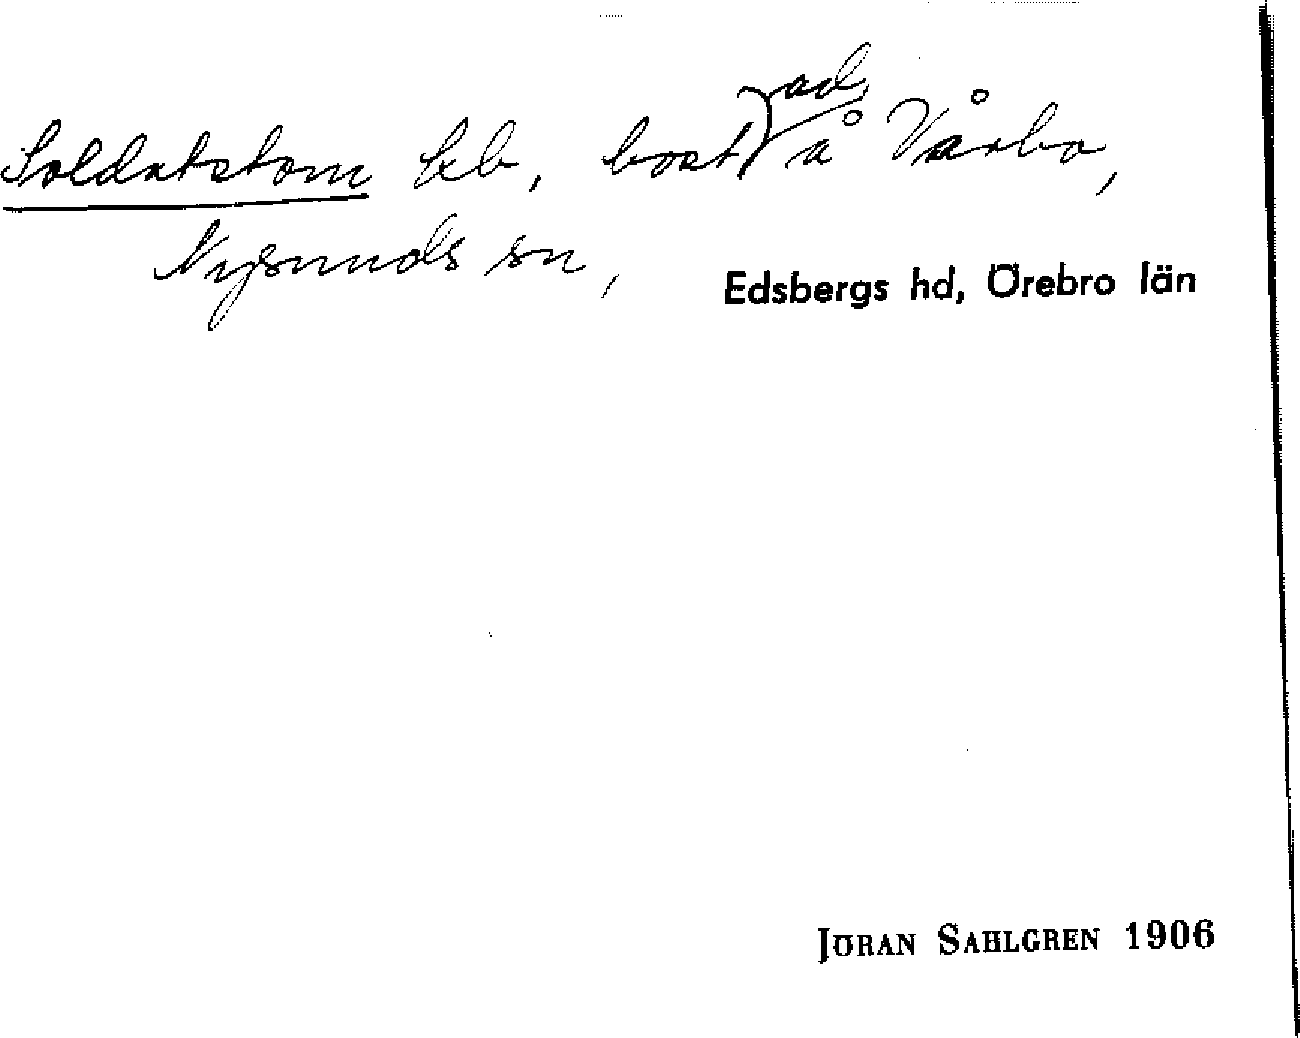 Soldatstom lzb, bostad å Vårbo,
Nysunds sn, Edsbergs hd, Örebro län
JÖRAN SAHLGREN 1906